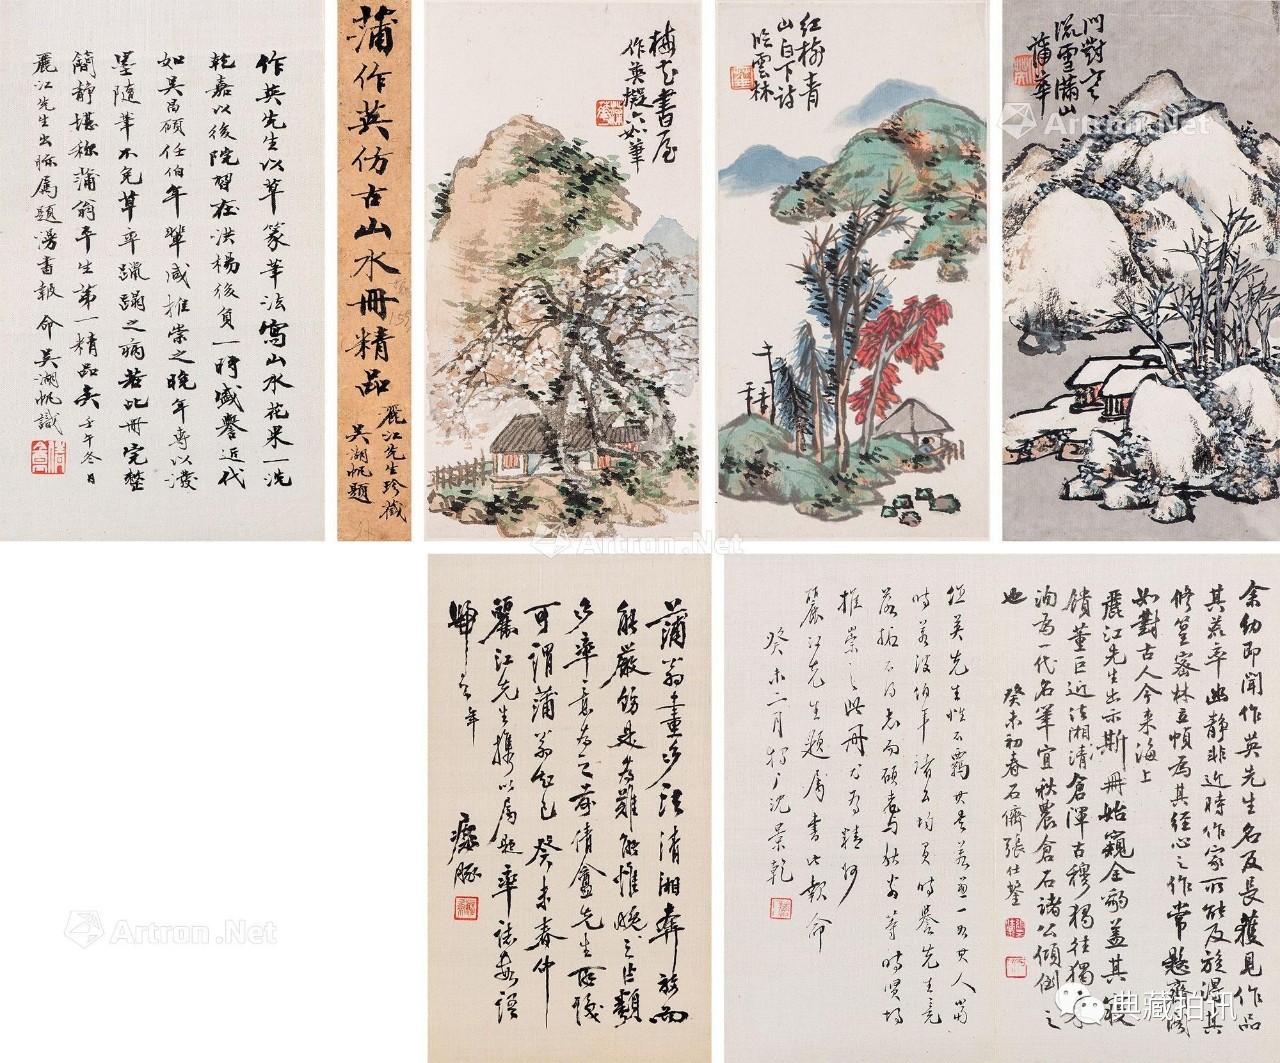 作英先生以草篆筆法寫山水花果一洗
乾嘉以後院習在洪楊後負一時盛譽近代
如吳昌碩任伯年輩咸推崇之晚年專以潑
墨隨筆不免草率蹋之病若此冊完整
簡靜堪称蒲翁平生第一精品矣壬午冬日
麗江先生出眎屬題漫書報命吳湖帆識
蒲作英仿古山水冊精品
麗江先生珍藏
吳湖帆題
梅花書屋
作英擬六如筆
紅樹青
山白下詩
臨雲林
門對寒
流雪滿山
蒲華
蒲翁畫多法清湘奔放而
能嚴飭是為難能惟晚之作類
多率意為之前倩盦先生所
可謂蒲翁知己癸未春仲
麗江先生攜以屬題率誌數語
歸之年
作英先生性不羈其畫亦一如其人當
時若吳伯年諸公均負時譽先生竟
落拓不得志而碩老與秋農等時賢均
推崇之此冊尤為精
麗江先生題屬書此報命
癸未二月沈景乾
余幼即聞作英先生名及長獲見作品
其荒率幽靜非近時作家所能及旋得其
修篁密林立幀為其經心之作常懸齋
如對古人今來海上
麗江先生出示斯冊始窺全豹蓋其取
饋董巨近法湘清倉渾古穆獨往獨
洵為一代名筆宜秋農倉石諸公傾倒之
也
癸未初春石儕張仕
Artron.Net
Artron.Net
Artron.Net
Artron.Net
典藏拍讯